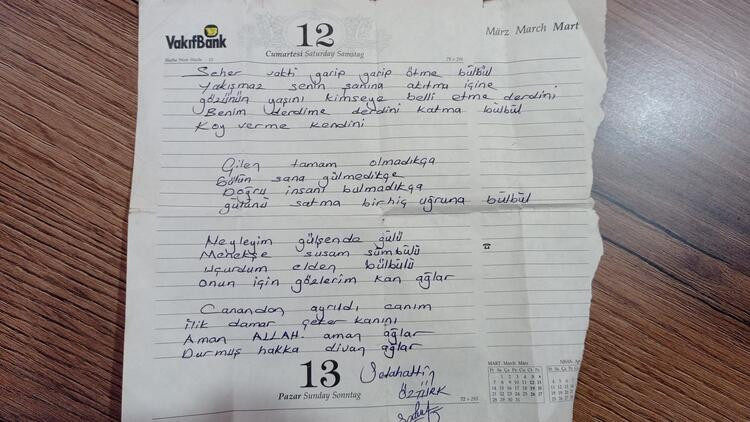 VakıfBank
12
März March Mart
Cumartesi Saturday Samstag
Seher vakti garip garip ötme bülbül
Yakışmaz senin şanına akıtma içine
gözünün yaşını kimseye belli etme derdini
Benim derdime derdini katma bülbül
Koy verme kendini
Çilen tamam olmadıkça
Gülün sana gülmedikçe
Doğru insanı bulmadıkça
gülünü satma birhiç uğruna bülbül
Neyleyim gülşende gülü
Menekşe susam sümbülü
Uçurdum elden bülbülü
Onun için gözlerim kan ağlar
Canandan ayrıldı canım
ilik damar çeker kanını
Aman ALLAH aman ağlar
Durmuş hakka divan ağlar
13
Pazar Sunday Sonntag
Selahattin
ÖZTÜRK
MART March März